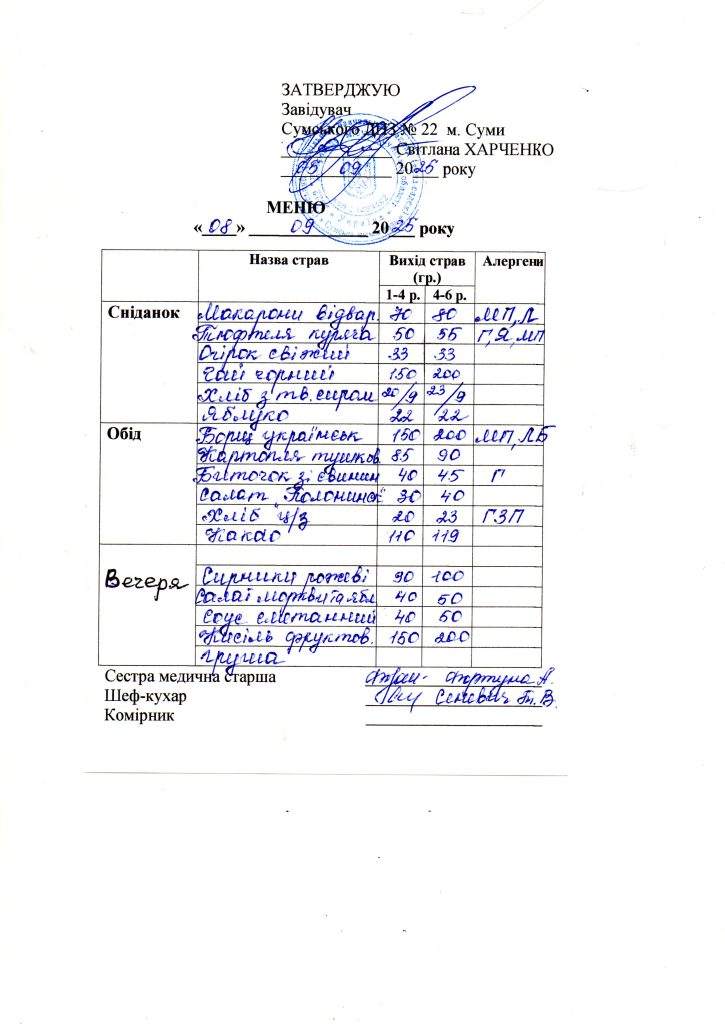 ЗАТВЕРДЖУЮ
Завідувач
Сумського ДНЗ № 22 м. Суми
Світлана ХАРЧЕНКО
05 09 2025 року
МЕНЮ
«08» 09 2025 року
Назва страв Вихід страв (гр.) Алергени
1-4 р. 4-6 р.
Сніданок Макарони відвар. 70 80 МП, Л
Тюфтеля куряча 50 55 Г, Я, МП
Огірок свіжий 33 33
Чай чорний 150 200
Хліб з тв. сиром 20/9 23/9
Яблуко 22 22
Обід Борщ українськ 150 200 МП, ЛБ
Картопля тушков. 85 90
Биточок зі свинин 40 45 Г
Салат "Колонинск" 30 40
Хліб ц/з 20 23 ГЗП
Какао 110 119
Вечеря
Сирники рожеві 90 100
Салат моркви та ябл 40 50
Соус сметанний 40 50
Кисіль фруктов. 150 200
груша
Сестра медична старша Фортуна А.
Шеф-кухар Сеневич Т. В.
Комірник